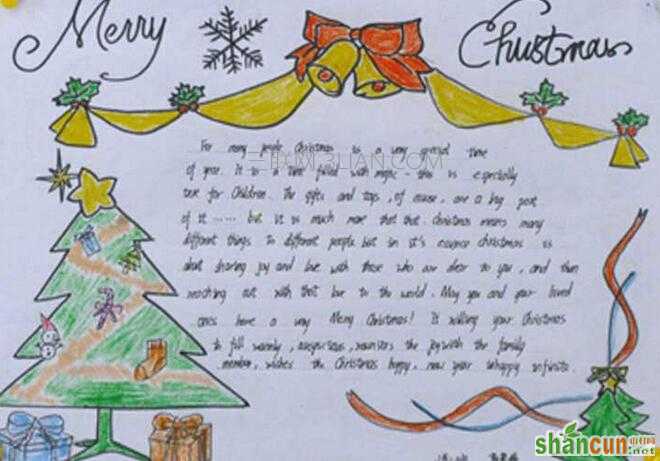 Merry Christmas
For many people Christmas is a very special time
of year. It is a time filled with magic - this is especially
true for Children. The gifts and toys, of course, are a big part
of it ...... but it is much more that that. Christmas means many
different things to different people but in it's essence christmas is
about sharing joy and love with those who are dear to you, and then
reaching out with that love to the world. May you and your loved
ones have a very Merry Christmas! Is willing your Christmas
to fill warmly, auspicious, the joy with the family
member, wishes the Christmas happy, new year whappy infinite.
三联网 3LIAN.COM
shancun
.net